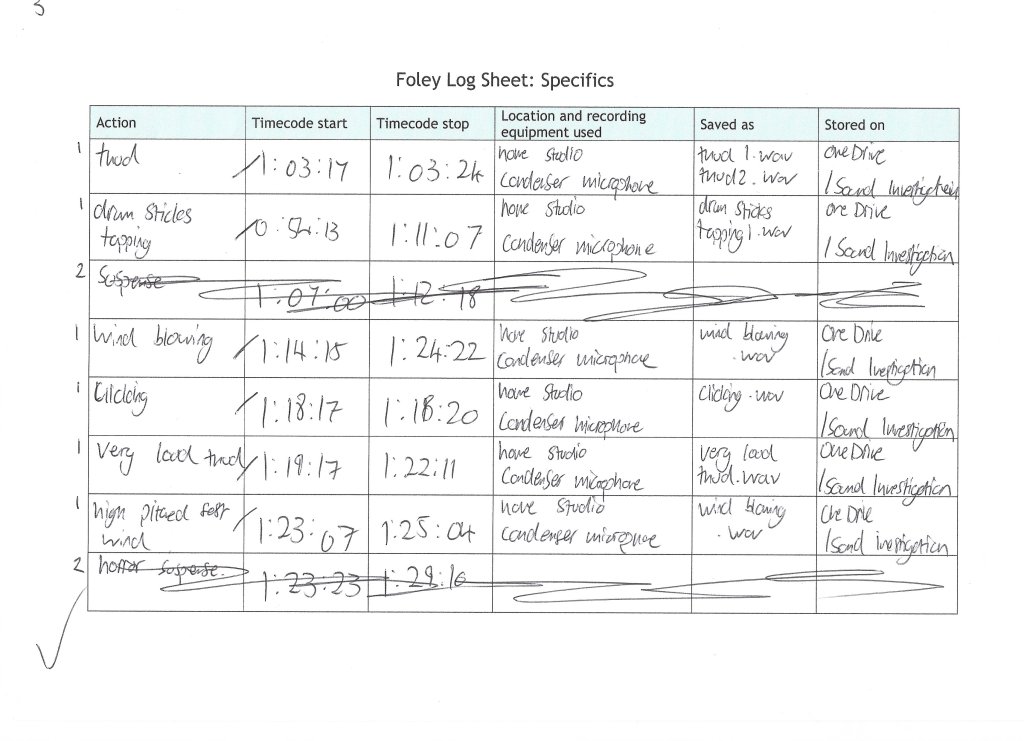 3
Foley Log Sheet: Specifics
Action
Timecode start
Timecode stop
Location and recording
equipment used
Saved as
Stored on
1
thud
1:03:17
1:03:24
home studio
Condenser microphone
thud 1.wav
thud2.wav
OneDrive
/Sound Investigation
1
drum sticks
tapping
0:54:13
1:11:07
home studio
Condenser microphone
drum sticks
tapping1.wav
One Drive
/Sound Investigation
2
Suspense
1:07:00
1:12:18
1
Wind blowing
1:14:15
1:24:22
home studio
Condenser microphone
wind blowing
.wav
One Drive
/Sound Investigation
1
Clicking
1:18:17
1:18:20
home studio
Condenser microphone
Clicking.wav
One Drive
/Sound Investigation
1
Very loud thud
1:19:17
1:22:11
home studio
Condenser microphone
very loud
thud.wav
OneDrive
/Sound Investigation
1
high pitched fast
wind
1:23:07
1:25:04
home studio
Condenser microphone
wind blowing
.wav
One Drive
/Sound investigation
2
horror suspense.
1:23:23
1:29:16